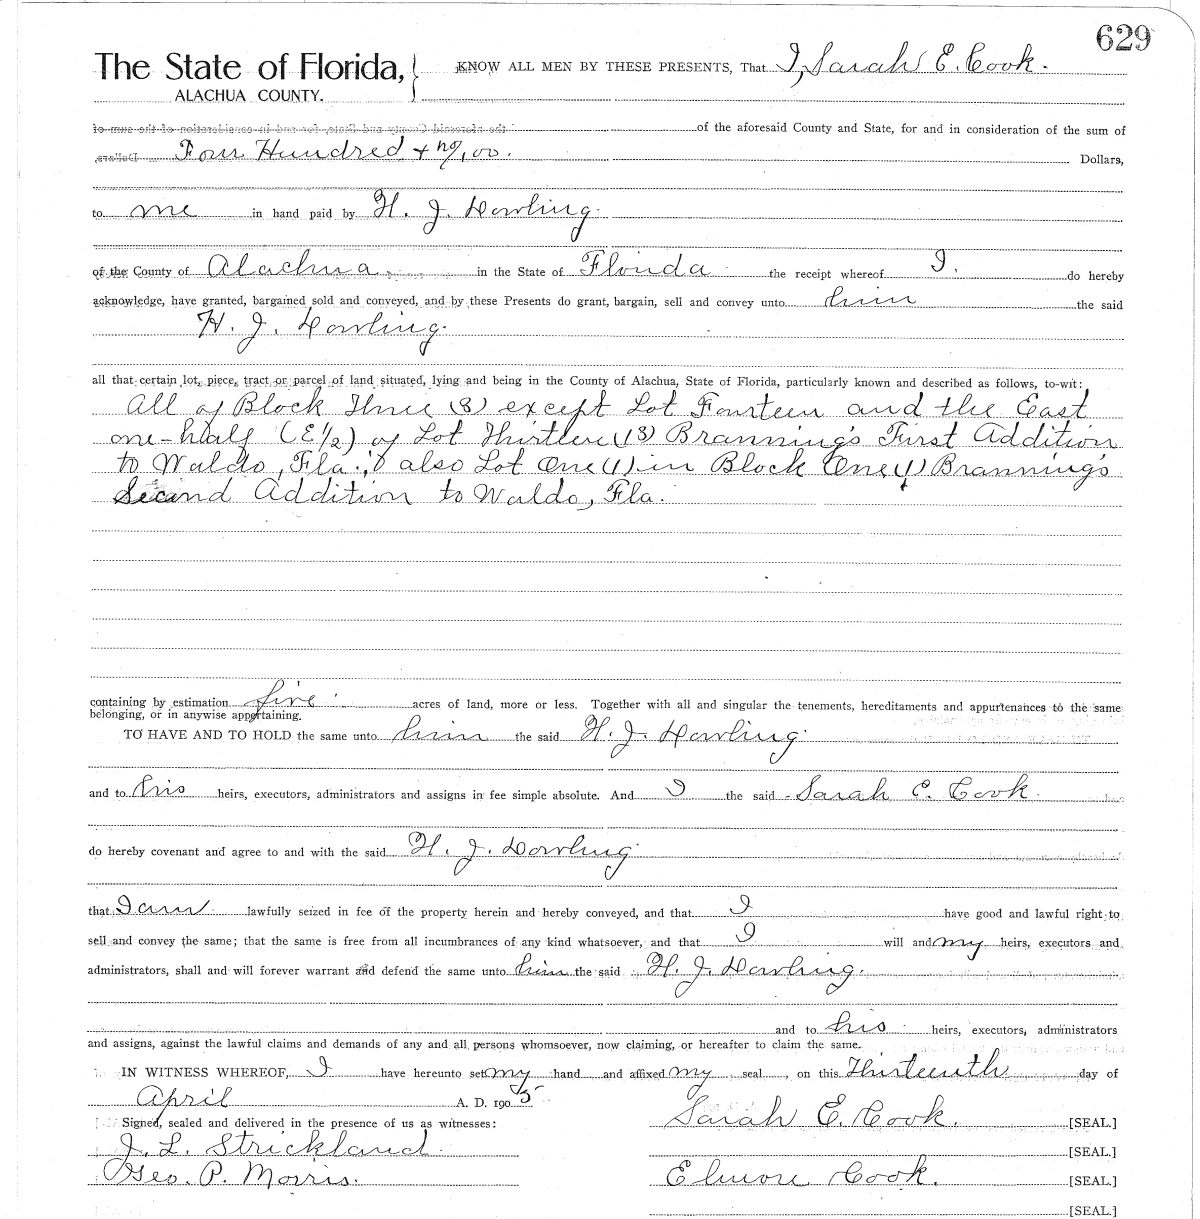 629
The State of Florida, KNOW ALL MEN BY THESE PRESENTS, That I, Sarah E. Cook.
ALACHUA COUNTY.
of the aforesaid County and State, for and in consideration of the sum of
Four Hundred + no/100. Dollars,
to me in hand paid by H. J. Dowling
of the County of Alachua, in the State of Florida the receipt whereof I. do hereby
acknowledge, have granted, bargained sold and conveyed, and by these Presents do grant, bargain, sell and convey unto him the said
H. J. Dowling.
all that certain lot, piece, tract or parcel of land situated, lying and being in the County of Alachua, State of Florida, particularly known and described as follows, to-wit:
All of Block Three (3) except Lot Fourteen and the East
one-half (E 1/2) of Lot Thirteen (13) Branning's First Addition
to Waldo, Fla.; & also Lot One (1) in Block One (1) Branning's
Second Addition to Waldo, Fla.
containing by estimation five acres of land, more or less. Together with all and singular the tenements, hereditaments and appurtenances to the same
belonging, or in anywise appertaining.
TO HAVE AND TO HOLD the same unto him the said H. J. Dowling
and to his heirs, executors, administrators and assigns in fee simple absolute. And I the said Sarah E. Cook
do hereby covenant and agree to and with the said H. J. Dowling
that I am lawfully seized in fee of the property herein and hereby conveyed, and that I have good and lawful right to
sell and convey the same; that the same is free from all incumbrances of any kind whatsoever, and that I will and my heirs, executors and
administrators, shall and will forever warrant and defend the same unto him the said H. J. Dowling.
and to his heirs, executors, administrators
and assigns, against the lawful claims and demands of any and all persons whomsoever, now claiming, or hereafter to claim the same.
IN WITNESS WHEREOF, I have hereunto set my hand and affixed my seal, on this Thirteenth day of
April A. D. 1905
Signed, sealed and delivered in the presence of us as witnesses: Sarah E. Cook. [SEAL.]
J. L. Strickland. [SEAL.]
Geo. P. Morris. Elmore Cook. [SEAL.]
[SEAL.]